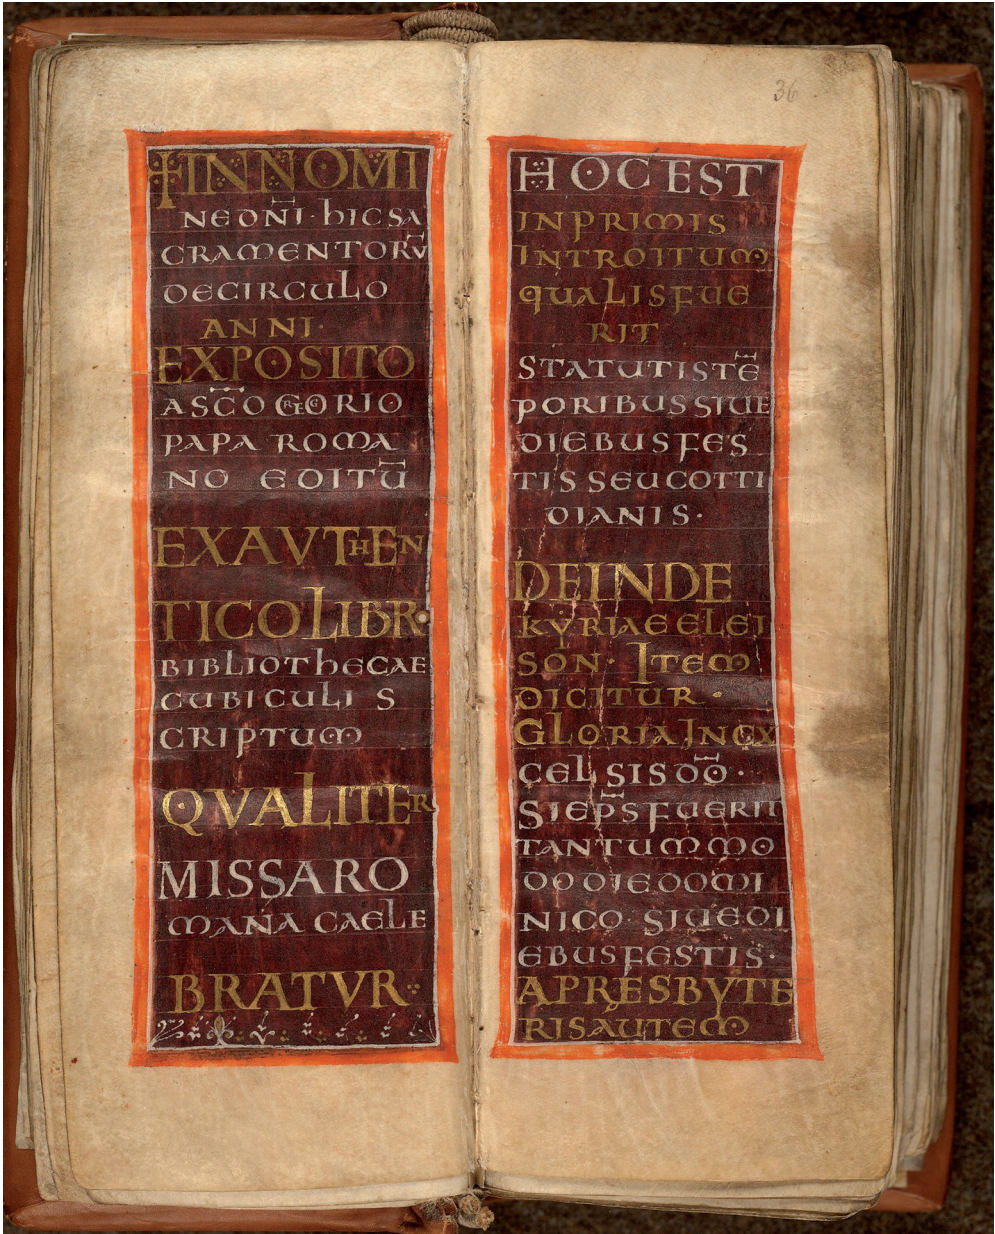 ☩ IN NOMI
NE DN̄I · hIC SA
CRAMENTORV̄
DE CIRCULO
ANNI ·
EXPOSITO
A SC̄O GREGORIO
PAPA ROMA
NO EDITŪ
EX AVTHEN
TICO LIBR·
BIBLIOThECAE
CUBICULI S
CRIPTUM
QVALITER
MISSA RO
MANA CAELE
BRATVR
36
HOC EST
INPRIMIS
INTROITUM
qUALIS FUE
RIT
STATUTIS TĒ
PORIBUS SIUE
DIEBUS FES
TIS SEU COTTI
DIANIS ·
DEINDE
KYRIAE ELEI
SON · ITEM
DICITUR ·
GLORIA IN EX
CELSIS DŌ ·
SI EP̄S FUERIT
TANTUMMO
DO DIE DOMI
NICO · SIUE DI
EBUS FESTIS ·
A PRESBYTE
RIS AUTEM